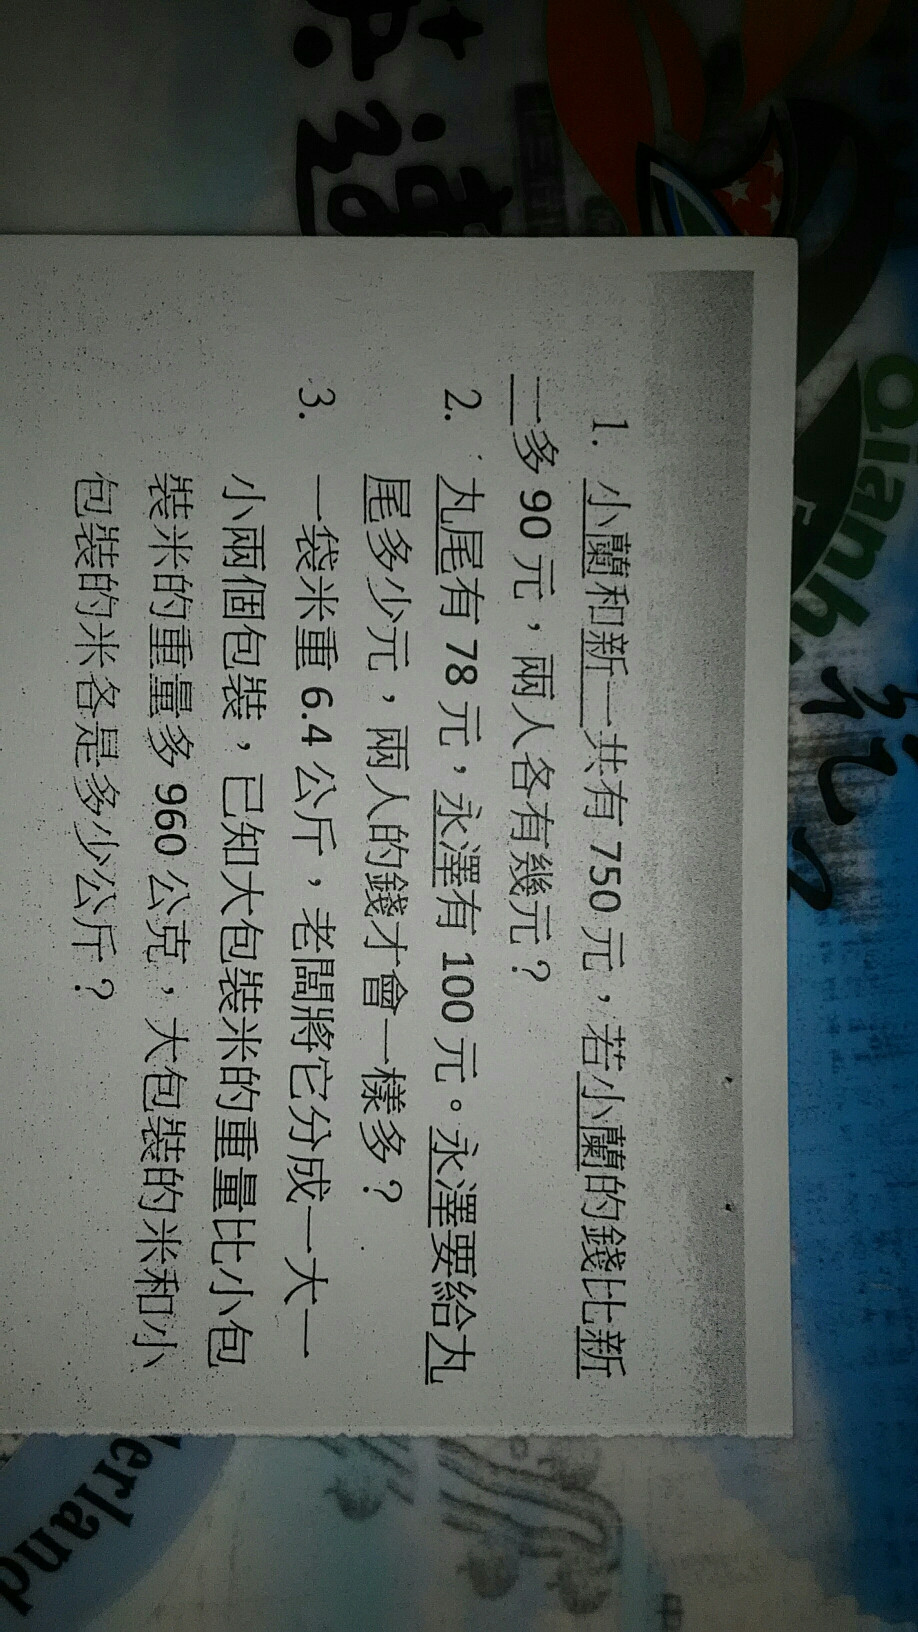 1. 小蘭和新一共有 750 元，若小蘭的錢比新
一多 90 元，兩人各有幾元？
2. 丸尾有 78 元，永澤有 100 元。永澤要給丸
尾多少元，兩人的錢才會一樣多？
3. 一袋米重 6.4 公斤，老闆將它分成一大一
小兩個包裝，已知大包裝米的重量比小包
裝米的重量多 960 公克，大包裝的米和小
包裝的米各是多少公斤？
Qianh
erland
中